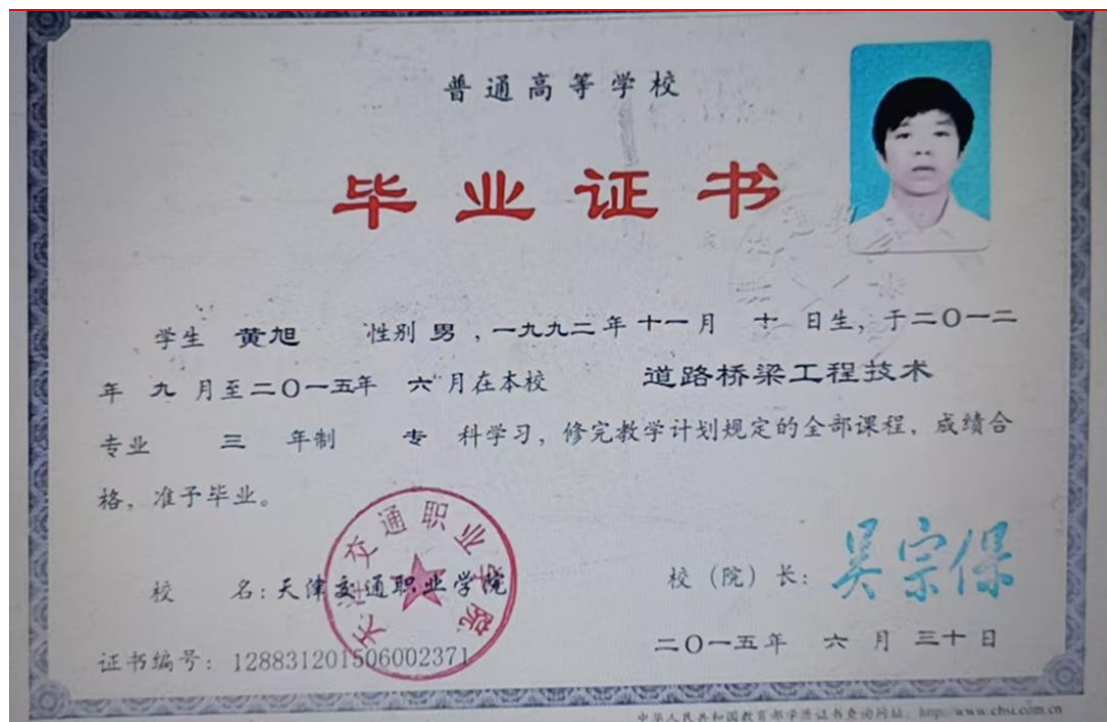 普通高等学校
毕业证书
学生 黄旭 性别 男，一九九二年 十一月 十 日生，于二〇一二
年 九 月至二〇一五年 六 月在本校 道路桥梁工程技术
专业 三 年制 专 科学习，修完教学计划规定的全部课程，成绩合
格，准予毕业。
天津交通职业学院
校 名：天津交通职业学院 校（院）长：吴宗保
证书编号：128831201506002371 二〇一五年 六 月 三十日
中华人民共和国教育部学历证书查询网址：http://www.chsi.com.cn